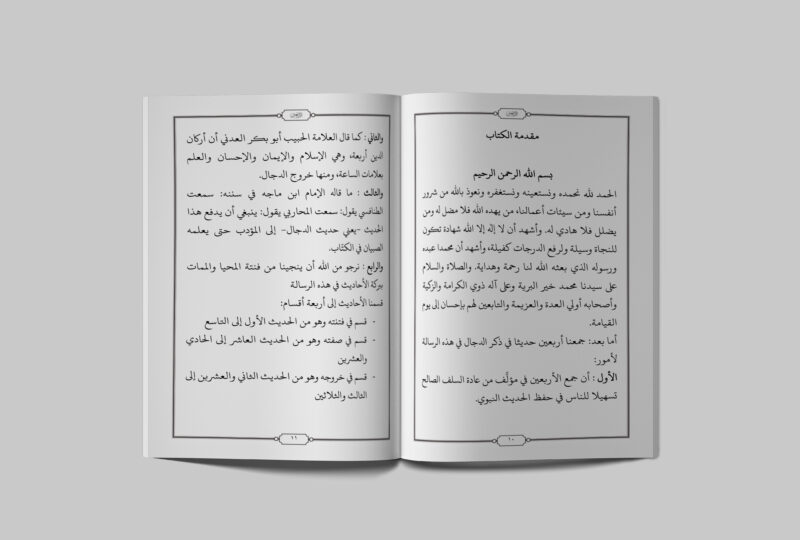 مقدمة الكتاب
بسم الله الرحمن الرحيم
الحمد لله نحمده ونستعينه ونستغفره ونعوذ بالله من شرور
أنفسنا ومن سيئات أعمالنا، من يهده الله فلا مضل له ومن
يضلل فلا هادي له. وأشهد أن لا إله إلا الله شهادة تكون
للنجاة وسيلة ولرفع الدرجات كفيلة، وأشهد أن محمدا عبده
ورسوله الذي بعثه الله لنا رحمة وهداية. والصلاة والسلام
على سيدنا محمد خير البرية وعلى آله ذوي الكرامة والزكية
وأصحابه أولي العدة والعزيمة والتابعين لهم بإحسان إلى يوم
القيامة.
أما بعد: جمعنا أربعين حديثا في ذكر الدجال في هذه الرسالة
لأمور:
الأول : أن جمع الأربعين في مؤلَّف من عادة السلف الصالح
تسهيلا للناس في حفظ الحديث النبوي.
١٠
والثاني : كما قال العلامة الحبيب أبو بكر العدني أن أركان
الدين أربعة، وهي الإسلام والإيمان والإحسان والعلم
بعلامات الساعة، ومنها خروج الدجال.
والثالث : ما قاله الإمام ابن ماجه في سننه: سمعت
الطنافسي يقول: سمعت المحاربي يقول: ينبغي أن يدفع هذا
الحديث -يعني حديث الدجال- إلى المؤدب حتى يعلمه
الصبيان في الكتّاب.
والرابع : نرجو من الله أن ينجينا من فتنة المحيا والممات
ببركة الأحاديث في هذه الرسالة
قسمنا الأحاديث إلى أربعة أقسام:
- قسم في فتنته وهو من الحديث الأول إلى التاسع
- قسم في صفته وهو من الحديث العاشر إلى الحادي
والعشرين
- قسم في خروجه وهو من الحديث الثاني والعشرين إلى
الثالث والثلاثين
١١